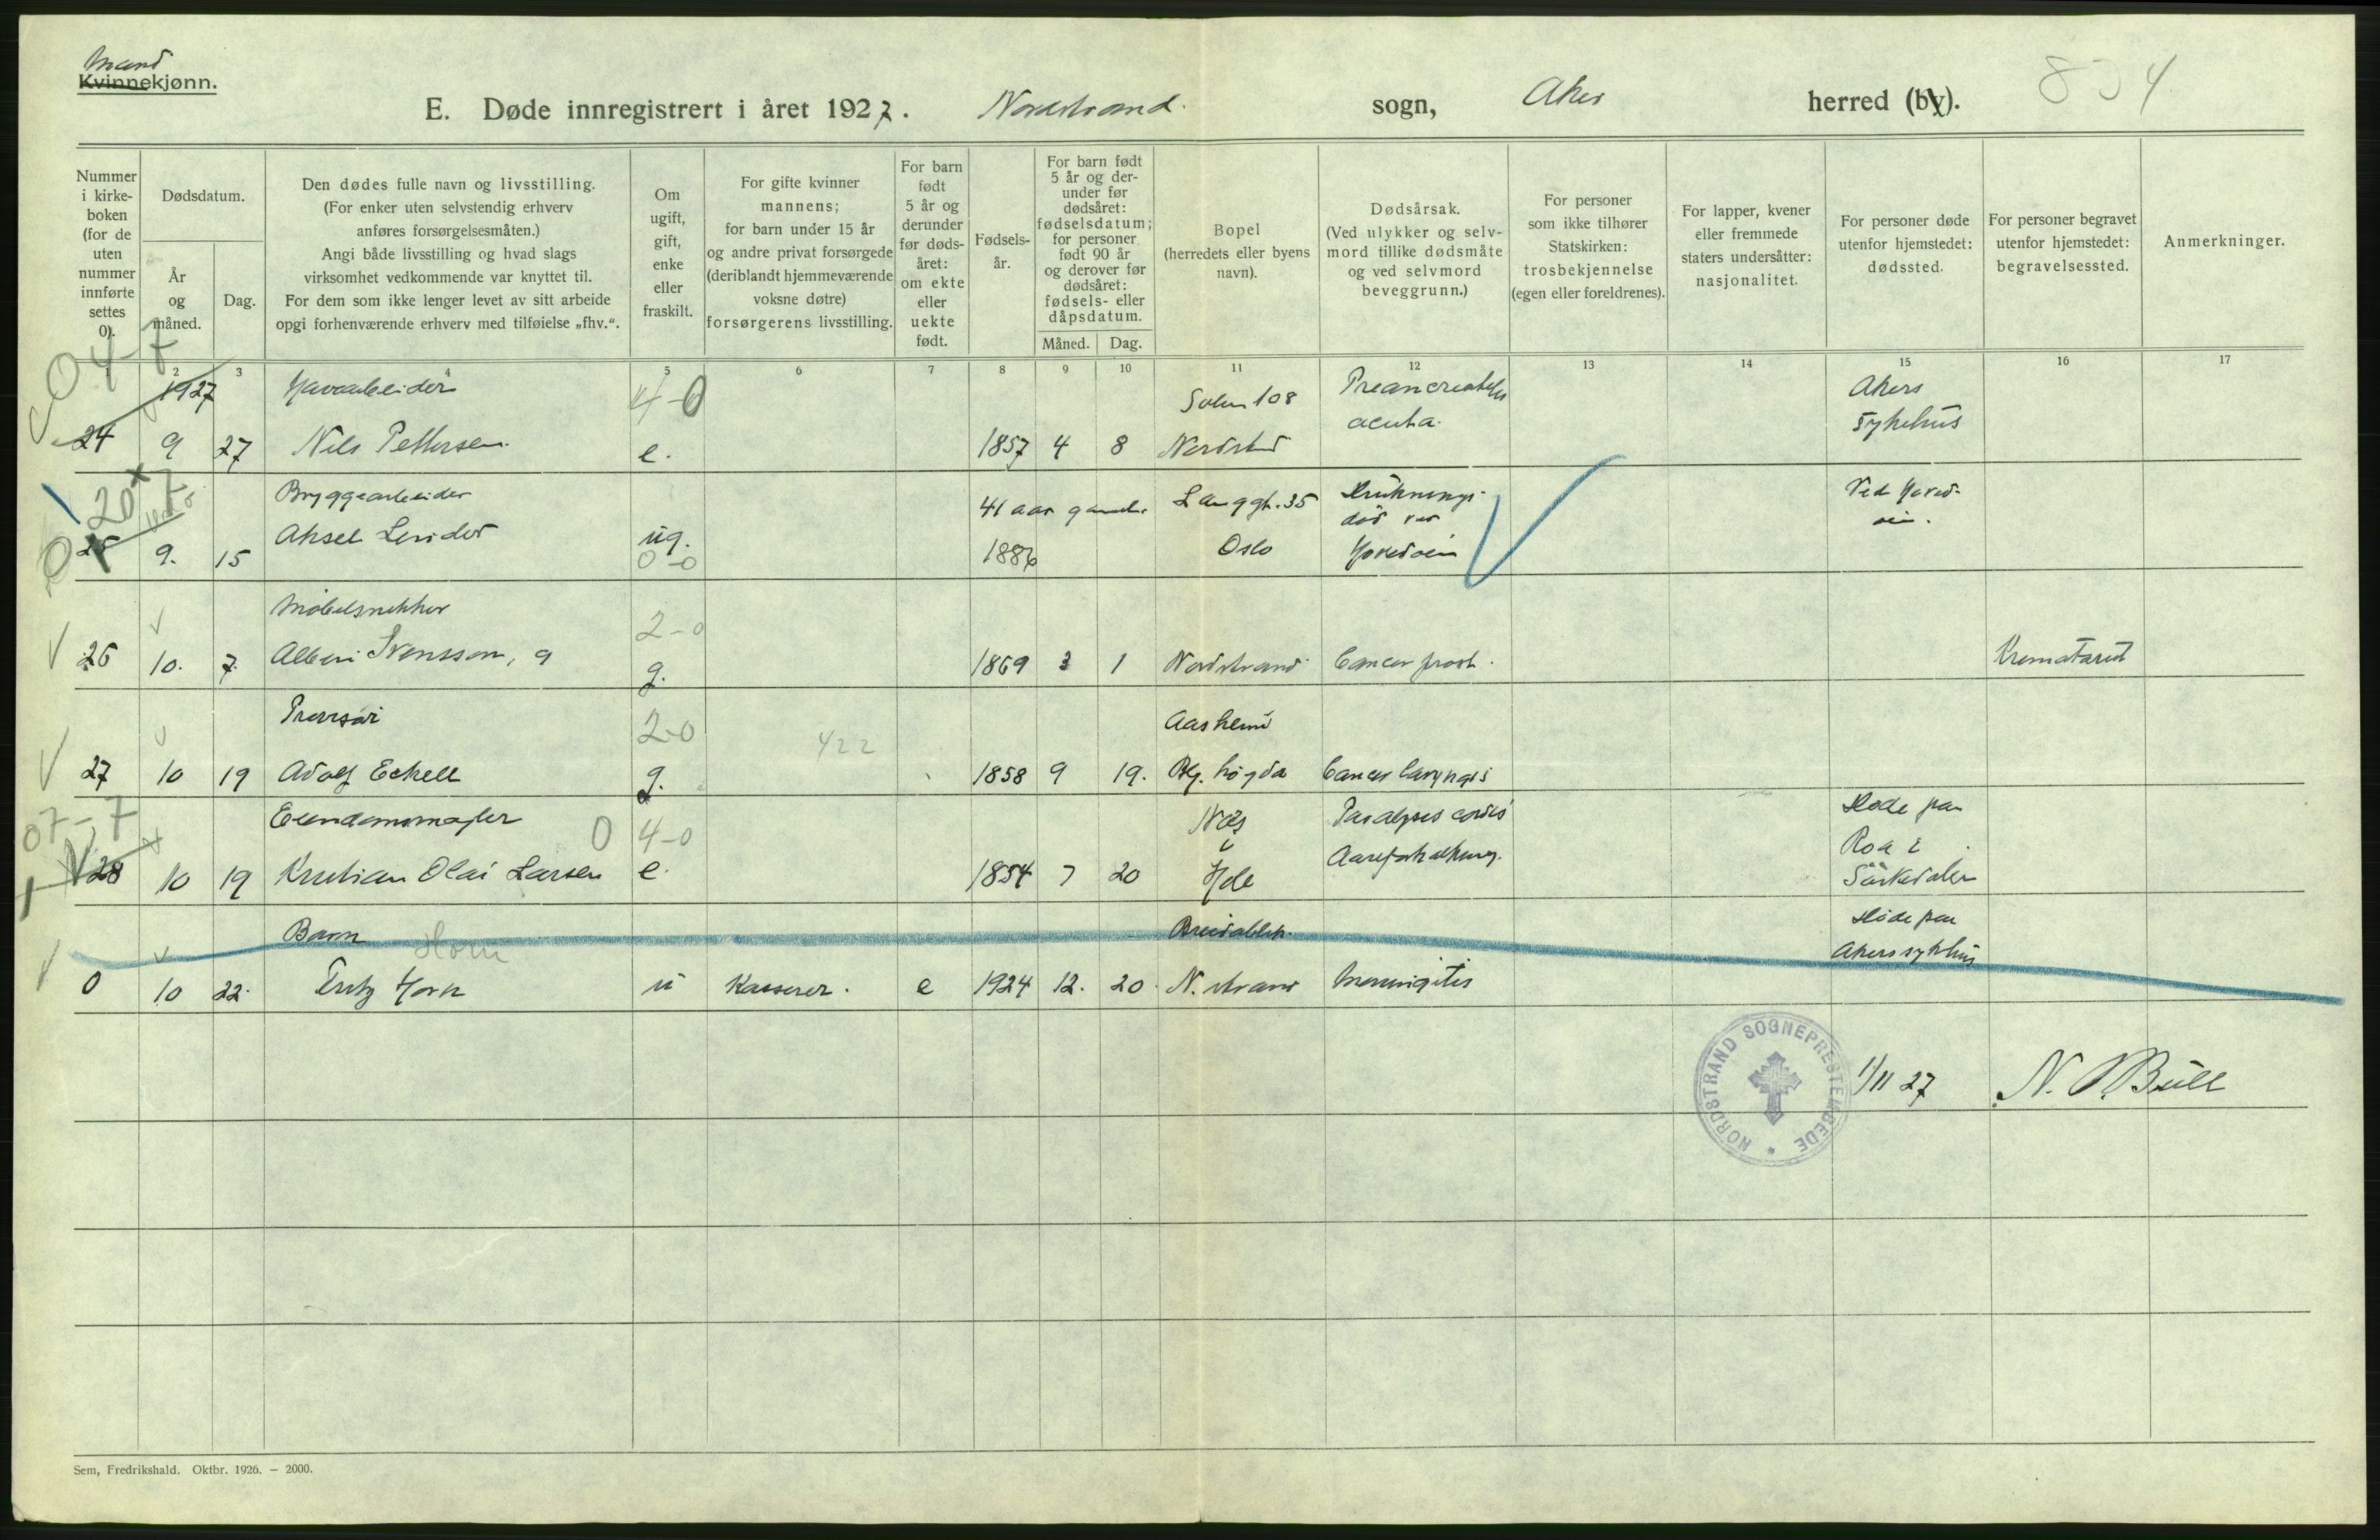 Mand
Kvinnekjønn.
E. Døde innregistrert i året 1927. Nordstrand. sogn, Aker herred (by).
834
Nummer i kirke-boken (for de uten nummer innførte settes 0).
Dødsdatum.
År og måned.
Dag.
Den dødes fulle navn og livsstilling.
(For enker uten selvstendig erhverv
anføres forsørgelsesmåten.)
Angi både livsstilling og hvad slags
virksomhet vedkommende var knyttet til.
For dem som ikke lenger levet av sitt arbeide
opgi forhenværende erhverv med tilføielse „fhv.“.
Om ugift, gift, enke eller fraskilt.
For gifte kvinner
mannens;
for barn under 15 år
og andre privat forsørgede
(deriblandt hjemmeværende
voksne døtre)
forsørgerens livsstilling.
For barn født 5 år og derunder før døds-året: om ekte eller uekte født.
Fødsels-år.
For barn født
5 år og der-
under før
dødsåret:
fødselsdatum;
for personer
født 90 år
og derover før
dødsåret:
fødsels- eller
dåpsdatum.
Måned. Dag.
Bopel
(herredets eller byens
navn).
Dødsårsak.
(Ved ulykker og selv-
mord tillike dødsmåte
og ved selvmord
beveggrunn.)
For personer
som ikke tilhører
Statskirken:
trosbekjennelse
(egen eller foreldrenes).
For lapper, kvener
eller fremmede
staters undersåtter:
nasjonalitet.
For personer døde
utenfor hjemstedet:
dødssted.
For personer begravet
utenfor hjemstedet:
begravelsessted.
Anmerkninger.
1 2 3 4 5 6 7 8 9 10 11 12 13 14 15 16 17
04-7
1927 Havearbeider 4-0 108 acuta. Akers sykehus
24 9 27 Nils Pettersen. e. 1857 4 8
20 7
Bryggearbeider 41 aar gammel. Langgt. 35 Druknings- Ved Hoved-
25 9. 15 Aksel ug. 1886 Oslo Hovedøen øen.
0-0
Møbelsnekker 2-0
26 10. 7. Svensson, g. 1869 3 1 Nordstrand Cancer prost. Krematoriet
Provisor 2-0 422 Aasheim
27 10 19 Adolf Eckell g. 1858 9 19. høgda Cancer laryngis
07-7
Eiendomsmægler 0 4-0 Paralysis cordis Døde paa
28 10 19 Kristian Olai Larsen e. 1854 7 20 Roa i Sørkedalen
Barn Horn Breidablik. Døde paa Akers sykhus
0 10 22. Fritz Horn u Kasserer. e 1924 12. 20. N. strand Meningitis
NORDSTRAND SOGNEPRESTEMBEDE
1/11 27 N. Bull
Sem, Fredrikshald. Oktbr. 1926. – 2000.